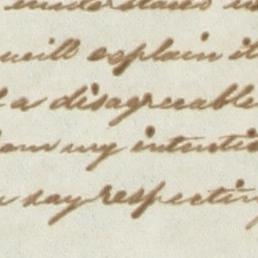 understand
will explain it
a disagreeable
am my intentio
say respecting